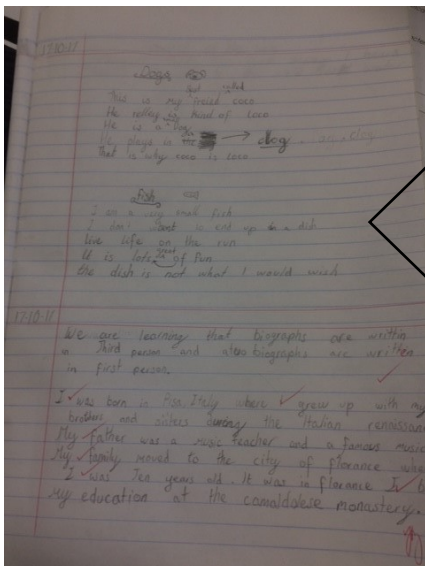 17-10-11
Dogs
called
This is my friend coco
He kind of loco
He is a
He plays in the dog. dog
That is why coco is loco
fish
I am a very small fish
I don't want to end up in a dish
live life on the run
it is lots of fun
the dish is not what I would wish
17-10-11
We are learning that biographs are written
in Third person and biographs are written
in first person.
I was born in Pisa, Italy where I grew up with my
brothers and sisters during the Italian rennissan
My father was a music teacher and a famous music
My family moved to the city of florance whe
I was Ten years old. It was in florance I b
my education at the camaldolese monastery.